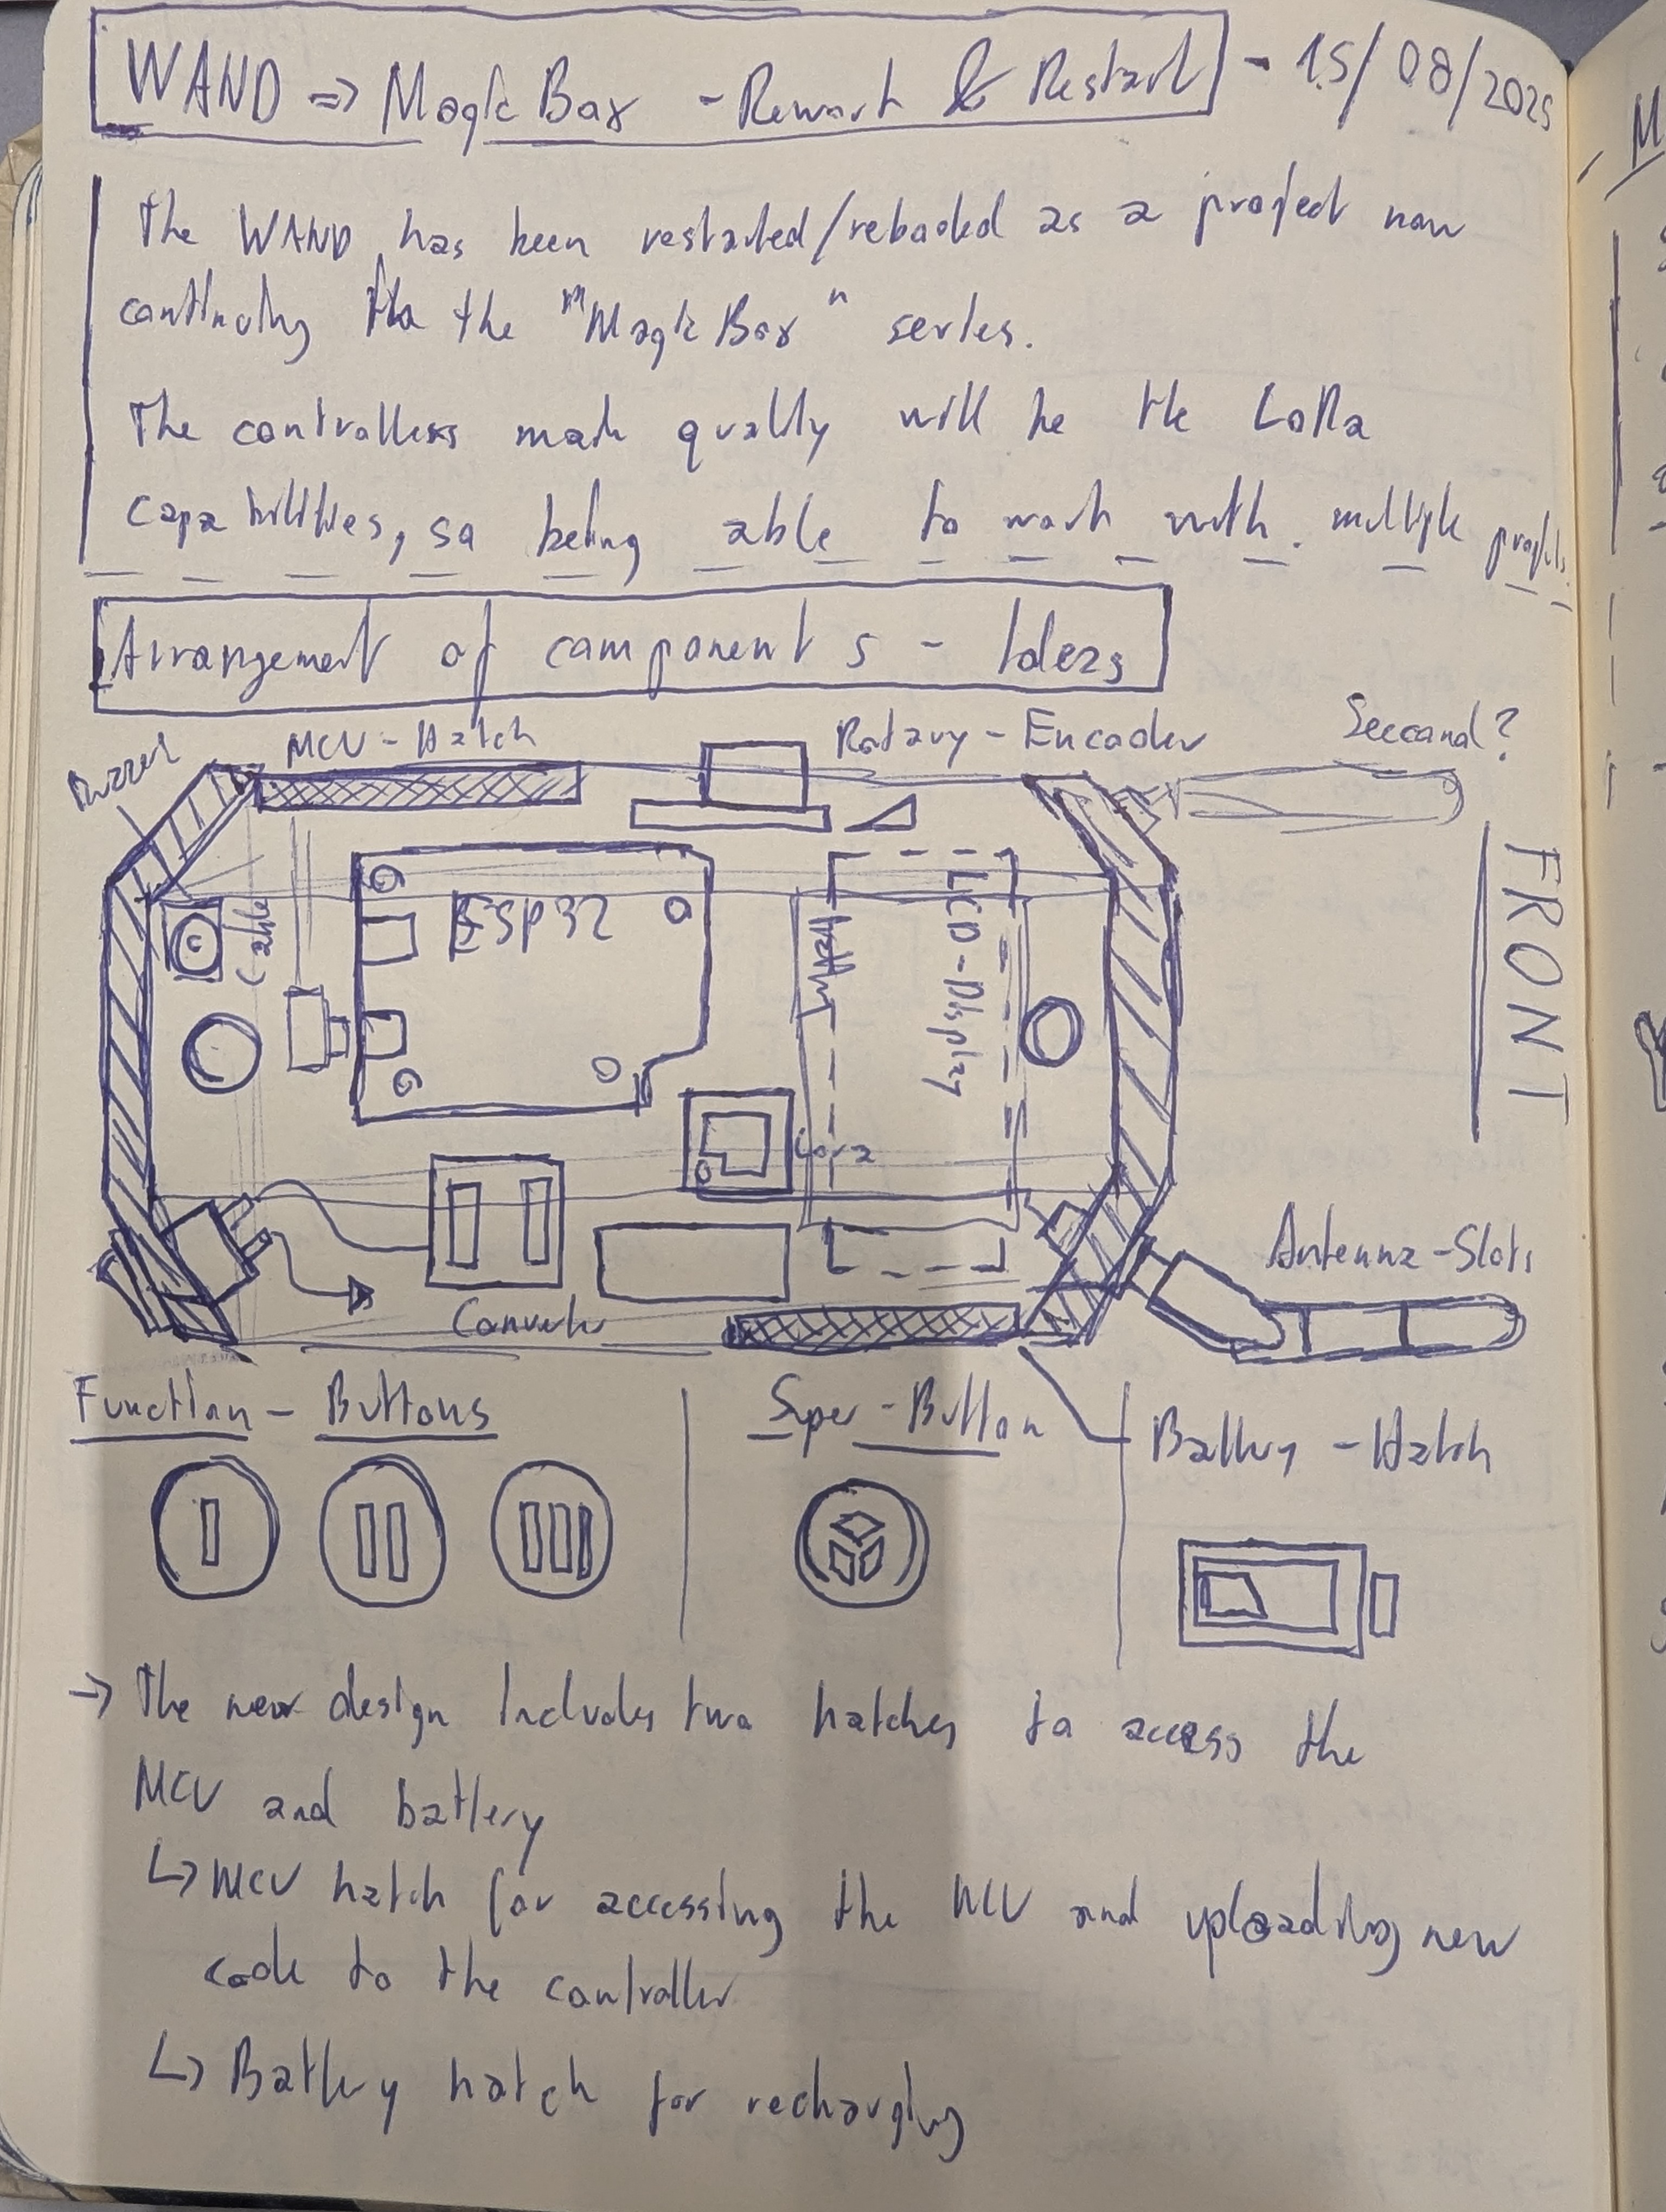 WAND => Magic Box - Rework & Restart - 15/08/2025
The WAND has been restarted/rebooted as a project now
continuing the the "Magic Box" series.
The controllers main quality will be the LoRa
capabilities, so being able to work with multiple
Arrangement of components - Ideas
Buzzer
MCU - Hatch
Rotary - Encoder
Seccond?
FRONT
Cable
ESP32
LCD - Display
Lora
Converter
Antenna - Slots
Function - Buttons
Super - Button
Battery - Hatch
-> The new design includes two hatches to access the
MCU and battery
↳ MCU hatch for accessing the MCU and uploading new
code to the controller
↳ Battery hatch for recharging